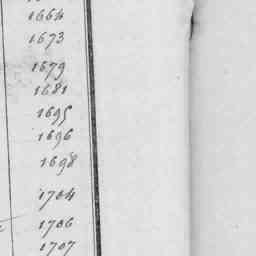 1664
1673
1679
1681
1695
1696
1698
1704
1706
1707